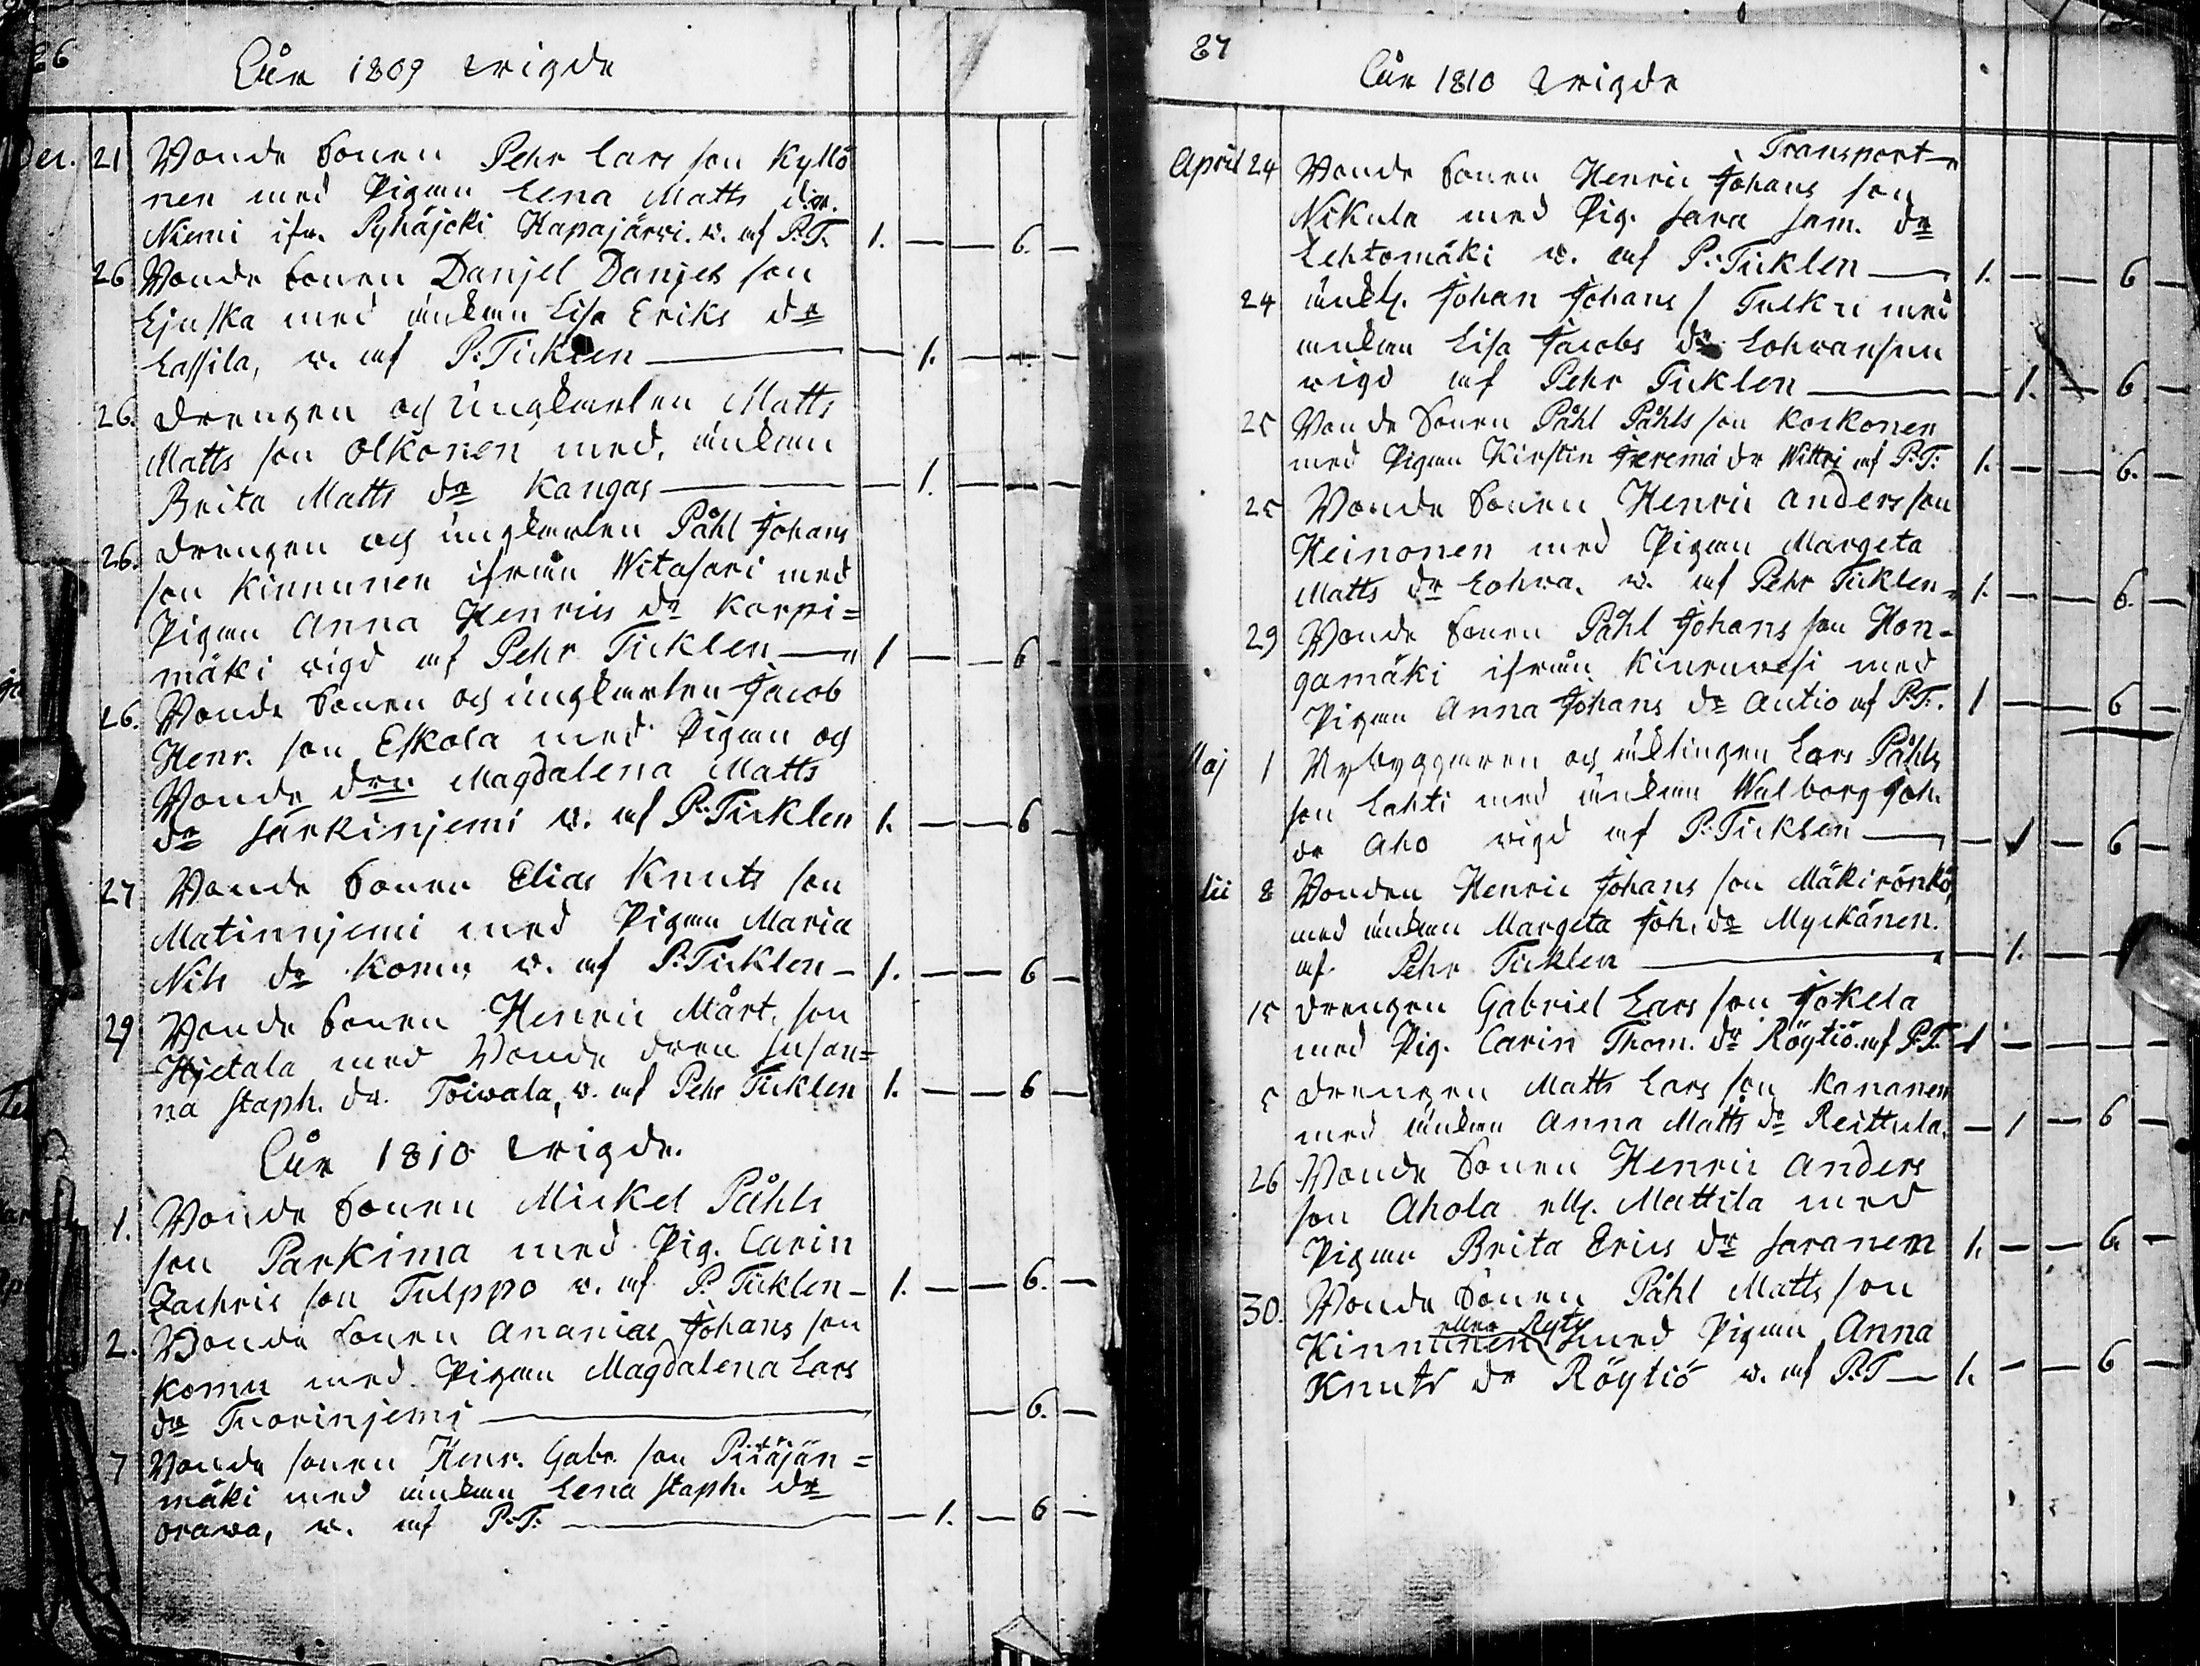 86
Åår 1809 wigde
Dec. 21 Bonde Sonen Pehr Lars son Kyllö
nen med Pigan Lena Matts dr.
Niemi ifr. Pyhäjoki Hapajärwi. w. af P:T. 1. — — 6. —
26 Bonde Sonen Danjel Danjels son
Ljuska med änkan Lisa Eriks dr
Lassila, w. af P:Ticklen — — 1. — —
26. Drengen og ungkarlen Matts
Matts son Olkonen med, änkan
Brita Matts dr Kangas — — 1. — — —
26. Drengen og ungkarlen Påhl Johans
son Kinnunen ifrån Witasari med
Pigan Anna Henrics dr Karpi=
mäki wigd af Pehr Ticklen — 1 — — 6 —
26. Bonde Sonen og ungkarlen Jacob
Henr. son Eskola med Pigan og
Bonde dren Magdalena Matts
dr Särkinjemi w. af P:Ticklen 1. — — 6 —
27 Bonde Sonen Elias Knuts son
Matinnjemi med Pigan Maria
Nils dr Komu w. af P:Ticklen — 1. — — 6 —
29 Bonde Sonen Henric Mårt. son
Hjetala med Bonde dren Susan=
na Staph. dr. Toiwala, w. af Pehr Ticklen 1. — — 6 —
Åår 1810 wigde.
1. Bonde Sonen Mickel Påhls
son Parkima med Pig. Carin
Zachris son Tulppo w. af P. Ticklen — 1. — — 6. —
2. Bonde Sonen Ananias Johans son
Komu med Pigan Magdalena Lars
dr Tuorinjemi — — 6. —
7 Bonde sonen Henr. Gabr. son Pitäjän=
mäki med änkan Lena Staph. dr
Orawa, w. af P:T: — — 1. — 6 —
87
Åår 1810 wigde
Transport
April 24 Bonde Sonen Henric Johans son
Nikula med Pig. Sara Sam. dr
Lehtomäki w. af P:Ticklen — 1. — — 6 —
24 änkl. Johan Johans s Tulkri med
änkan Lisa Jacobs dr Lohwansun
wigd af Pehr Ticklen — — 1. — 6 —
25 Bonde Sonen Påhl Påhls son Koskonen
med Pigan Kirstin Jeremi dr Wittoi af P:T: 1. — — 6. —
25 Bonde Sonen Henric Anders son
Heinonen med Pigan Margeta
Matts dr Lohwa, w. af Pehr Ticklen 1. — — 6. —
29 Bonde Sonen Påhl Johans son Hon=
gamäki ifrån Kiuruwesi med
Pigan Anna Johans dr Autio af P:T. 1 — — 6 —
Maj 1 Nybyggaren og änklingen Lars Påhls
son Lahti med änkan Walborg Joh.
dr Aho wigd af P:Ticklen — — 1 — 6 —
8 Bonden Henric Johans son Mäkirönkö
med änkan Margeta Joh. dr Myckänen.
af Pehr Ticklen — — 1. — —
15 Drengen Gabriel Lars son Jokela
med Pig. Carin Thom. dr Röytiö. af P:T. 1 — — — —
Drengen Matts Lars son Kananen
med änkan Anna Matts dr Reittula. — 1 — 6 —
26 Bonde Sonen Henric Anders
son Ahola ell. Mattila med
Pigan Brita Erics dr Saranen 1. — — 6 —
30. Bonde Sonen Påhl Matts son
eller Ryty
Kinnunen med Pigan Anna
Knuts dr Röytiö w. af P:T — 1. — — 6 —